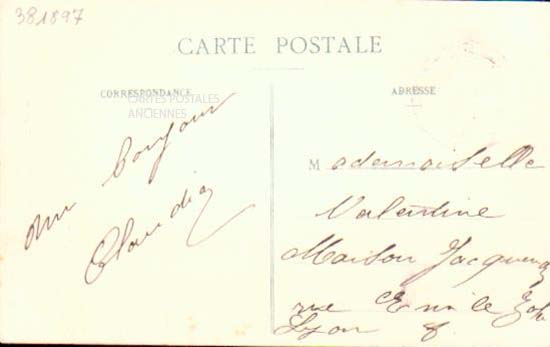 381897
CARTE POSTALE
CORRESPONDANCE
CARTES POSTALES
ANCIENNES
un bonjour
Claudia
ADRESSE
Mademoiselle
Valentine
Maison Jacquend
rue Emile Zola
Lyon